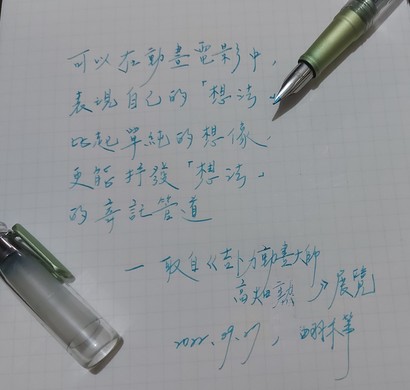 可以在動畫電影中,
表現自己的「想法」
比起單純的想像,
更能抒發「想法」
的寄託管道
— 取自《吉卜力動畫大師
高畑勳》展覽
2022.09.07,